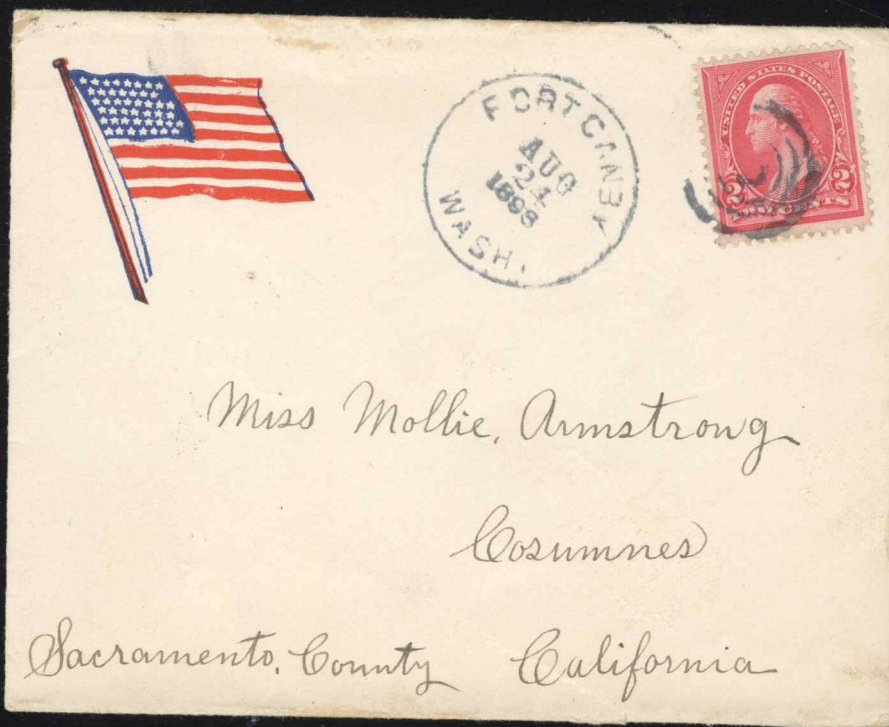 FORT CANBY
AUG
24
1898
WASH.
UNITED STATES POSTAGE
2 2
TWO CENTS
Miss Mollie, Armstrong
Cosumnes
Sacramento, County California